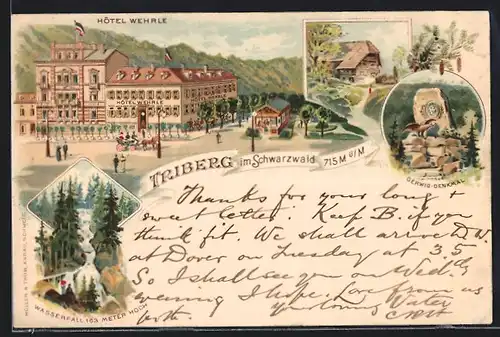 HÔTEL WEHRLE
HÔTEL WEHRLE
TRIBERG im Schwarzwald 715 M ü/M
GERWIG-DENKMAL
WASSERFALL 163 METER HOCH
Thanks for your long &
sweet letter. Keep B. if you
think fit. We shall arrive D.V.
at Dover on Tuesday at 3.5
So I shall see you on Wed:
evening I hope. Love from us
both. Your loving